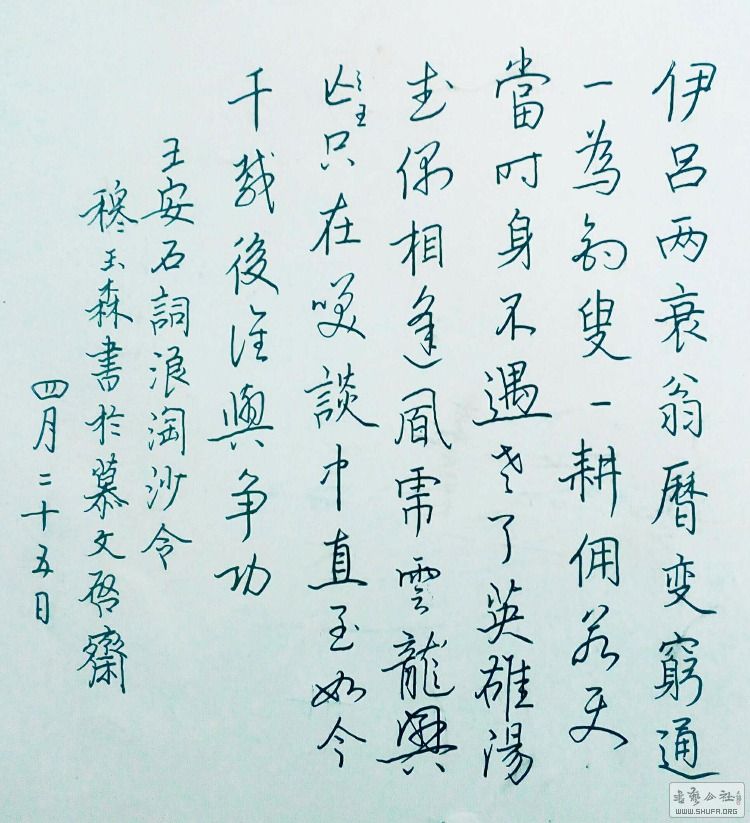 伊吕两衰翁曆变窮通
一為釣叟一耕佣若使
當时身不遇老了英雄湯
武偶相逢風乕雲龍興
王只在咲談中直至如今
千载後谁與争功
王安石詞浪淘沙令
穆玉森書於慕文啓齋
四月二十五日
书艺公社
WWW.SHUFA.ORG